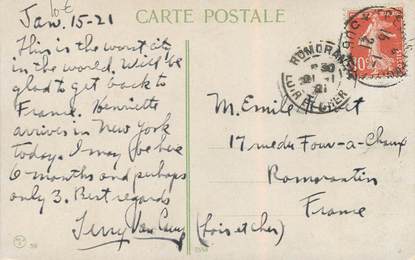 CARTE POSTALE
Jan. 15-21
This is the worst city
in the world. Will be
glad to get back to
France. Henriette
arrives in New York
today. I may be here
6 months and perhaps
only 3. Best regards
Jerry Van
M. Emile
17 rue du Four-a-Chaux
Romorantin
(Loir et Cher)
France
ROMORANTIN
LOIR ET CHER
21
10